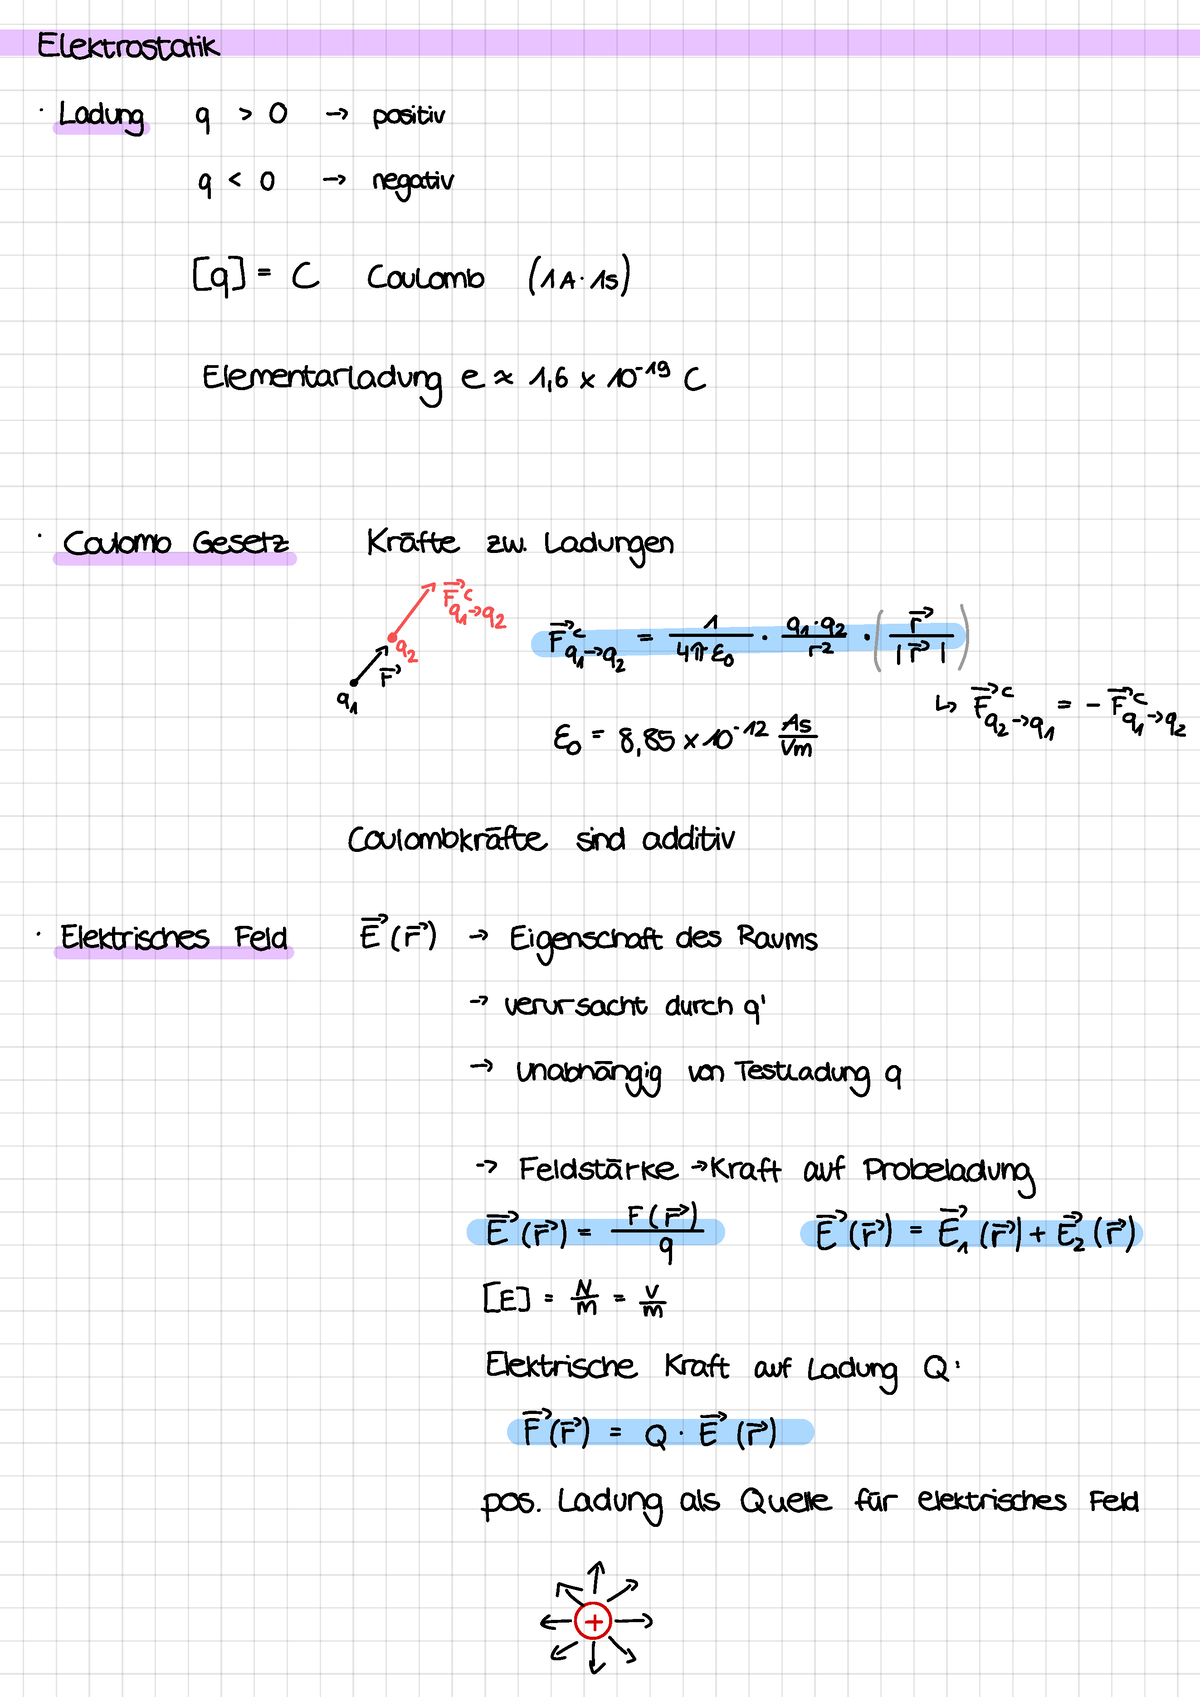 Elektrostatik
· Ladung q > 0 → positiv
q < 0 → negativ
[q] = C Coulomb (1A · 1s)
Elementarladung e ≈ 1,6 × 10⁻¹⁹ C
· Coulomb Gesetz Kräfte zw. Ladungen
F⃗ᶜ q₁→q₂
q₂
r⃗
q₁
F⃗ᶜ q₁→q₂ = 1/(4π ε₀) · (q₁·q₂)/r² · (r⃗/|r⃗|)
↳ F⃗ᶜ q₂→q₁ = − F⃗ᶜ q₁→q₂
ε₀ = 8,85 × 10⁻¹² As/Vm
Coulombkräfte sind additiv
· Elektrisches Feld E⃗(r⃗) → Eigenschaft des Raums
→ verursacht durch q'
→ unabhängig von Testladung q
→ Feldstärke → Kraft auf Probeladung
E⃗(r⃗) = F(r⃗)/q E⃗(r⃗) = E⃗₁(r⃗) + E⃗₂(r⃗)
[E] = N/m = V/m
Elektrische Kraft auf Ladung Q:
F⃗(r⃗) = Q · E⃗(r⃗)
pos. Ladung als Quelle für elektrisches Feld
+